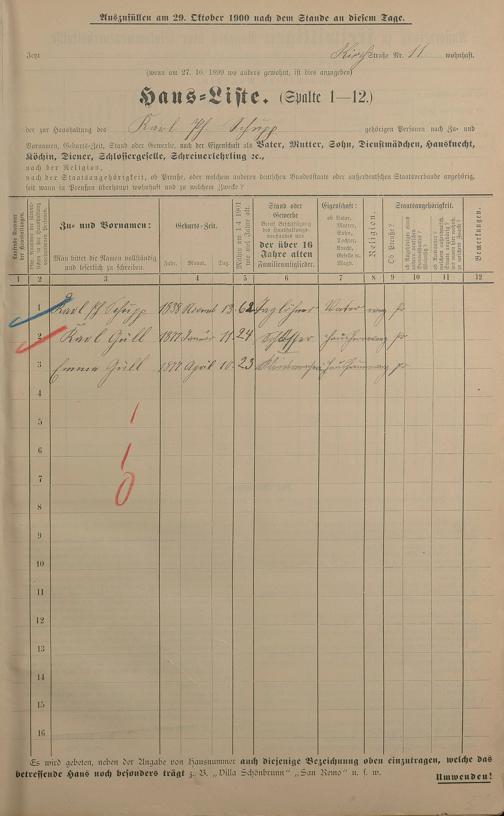 Auszufüllen am 29. Oktober 1900 nach dem Stande an diesem Tage.
Jetzt Kirch Straße Nr. 11 wohnhaft.
(wenn am 27. 10. 1899 wo anders gewohnt, ist dies anzugeben)
Haus-Liste. (Spalte 1—12.)
der zur Haushaltung des Karl Ph Schupp gehörigen Personen nach Zu- und
Vornamen, Geburts-Zeit, Stand oder nach der Eigenschaft als Vater, Mutter, Sohn, Dienstmädchen, Hausknecht,
Köchin, Diener, Schlossergeselle, Schreinerlehrling ꝛc.,
nach der Religion,
nach der Staatsangehörigkeit, ob Preuße, oder welchem anderen deutschen Bundesstaate oder außerdeutschen Staatsverbande angehörig,
seit wann in Preußen überhaupt wohnhaft und zu welchem Zwecke?
Zu- und Vornamen:
Man bittet die Namen vollständig
und leserlich zu schreiben.
Geburts-Zeit.
Jahr. Monat. Tag.
Mithin am 1.4.1901
wie viel Jahre alt.
Stand oder
Gewerbe
der über 16
Jahre alten
Familienmitglieder.
Eigenschaft:
ob Vater,
Mutter,
Sohn,
Tochter,
Knecht,
Geselle u.
Magd.
Religion.
Staatsangehörigkeit.
Ob Preuße?
Bemerkungen.
1 2 3 4 5 6 7 8 9 10 11 12
1 Karl Ph Schupp 1838 Novemb 13 62 Taglöhner Vater evg Pr
2 Karl Güll 1877 Januar 11 24 Schlosser evg Pr
3 Emma Güll 1877 April 10 23 evg Pr
4
5 1
6 1
7 0
8
9
10
11
12
13
14
15
16
Es wird gebeten, neben der Angabe von Hausnummer auch diejenige Bezeichnung oben einzutragen, welche das
betreffende Haus noch besonders trägt z. B. „Villa Schönbrunn" „San Remo" u. s. w.
Umwenden!